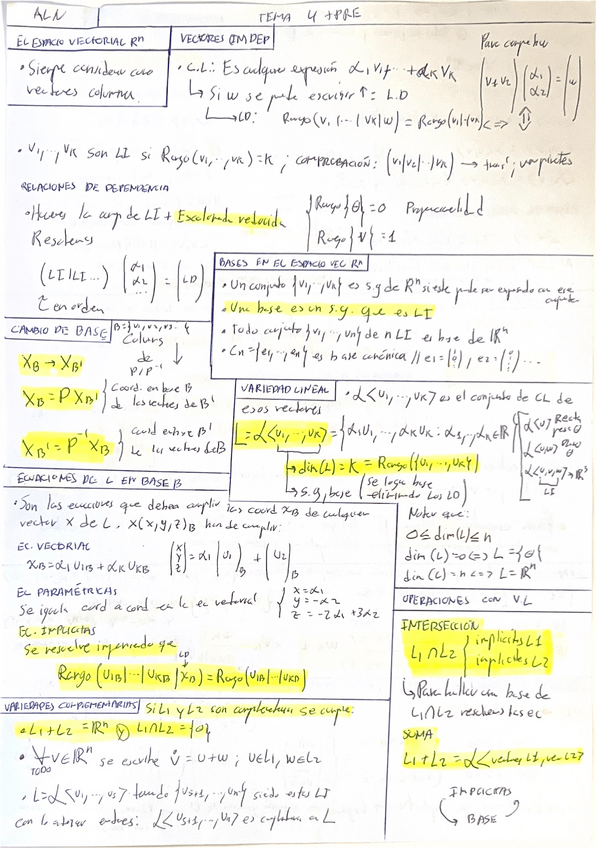 ALN TEMA 4 + PRE
EL ESPACIO VECTORIAL Rⁿ
• Siempre considerar como
vectores columna.
VECTORES (IN)DEP
• C.L.: Es cualquier expresión α1 v1 + ··· + αK VK
↳ Si w se puede escribir ↑ = L.D
↳ LD: Rango(v1 |···| VK|w) = Rango(v1|···|vK) <=>
Para comprobar
(v1 v2) (α1 α2) = (w)
• v1, ..., vK son LI si Rango(v1, ..., vK) = K ; COMPROBACIÓN: (v1|v2|...|vK) → ; ver pivotes
RELACIONES DE DEPENDENCIA
• Hacemos la comp de LI + Escalonada reducida
Resolvemos
{ Rango{θ} = 0 Proporcionalidad
Rango{v} = 1
(LI|LI...) (α1 α2 ...) = (LD)
en orden
BASES EN EL ESPACIO VEC Rⁿ
• Un conjunto {v1, ..., vK} es s.g de Rⁿ si este puede ser expresado con ese conjunto
• Una base es un s.g. que es LI
• Todo conjunto {v1, ..., vn} de n LI es base de Rⁿ
• Cn = {e1, ..., en} es base canónica // e1 = , e2 = ...
CAMBIO DE BASE
B = {v1, v2, v3 ..}
Columns
de
P / P⁻¹
XB → XB'
XB = P XB' } Coord. en base B de los vectores de B'
XB' = P⁻¹ XB } coord en base B' de los vectores de B
VARIEDAD LINEAL
• L<v1, ..., vK> es el conjunto de CL de
esos vectores
L = L<v1, ..., vK> = {α1 v1, ..., αK vK : α1, ..., αK ∈ R}
→ dim(L) = K = Rango({v1, ..., vK})
→ s.g, base (se logra base eliminando los LD)
Notar que:
0 ≤ dim(L) ≤ n
dim(L) = 0 <=> L = {θ}
dim(L) = n <=> L = Rⁿ
ECUACIONES DE L EN BASE B
• Son las ecuaciones que deben cumplir las coord XB de cualquier
vector X de L. X(x,y,z)B han de cumplir:
EC. VECTORIAL
XB = α1 U1B + αK UKB
(x y z) = α1 (U1)B + (U2)B
EC PARAMÉTRICAS
Se iguala coord a coord en la ec vectorial
x = α1
y = -α2
z = -2α1 + 3α2
EC. IMPLICITAS
Se resuelve imponiendo que
LD
Rango(U1B|···|UKB|XB) = Rango(U1B|···|UKB)
OPERACIONES CON V.L
INTERSECCIÓN
L1 ∩ L2 { implicitas L1 implicitas L2
↳ Para hallar una base de
L1 ∩ L2 resolvemos las ec
SUMA
L1 + L2 = L<vectores L1, vec L2>
IMPLICITAS
BASE
VARIEDADES COMPLEMENTARIAS
Si L1 y L2 son complementarias se cumple:
• L1 + L2 = Rⁿ y L1 ∩ L2 = {0}
• ∀v ∈ Rⁿ se escribe v = u + w ; u ∈ L1, w ∈ L2
TODO
• L = L<v1, ..., vs> tomando {vs+1, ..., vn} siendo estos LI
con lo anterior entonces: L<vs+1, ..., vn> es complementaria a L